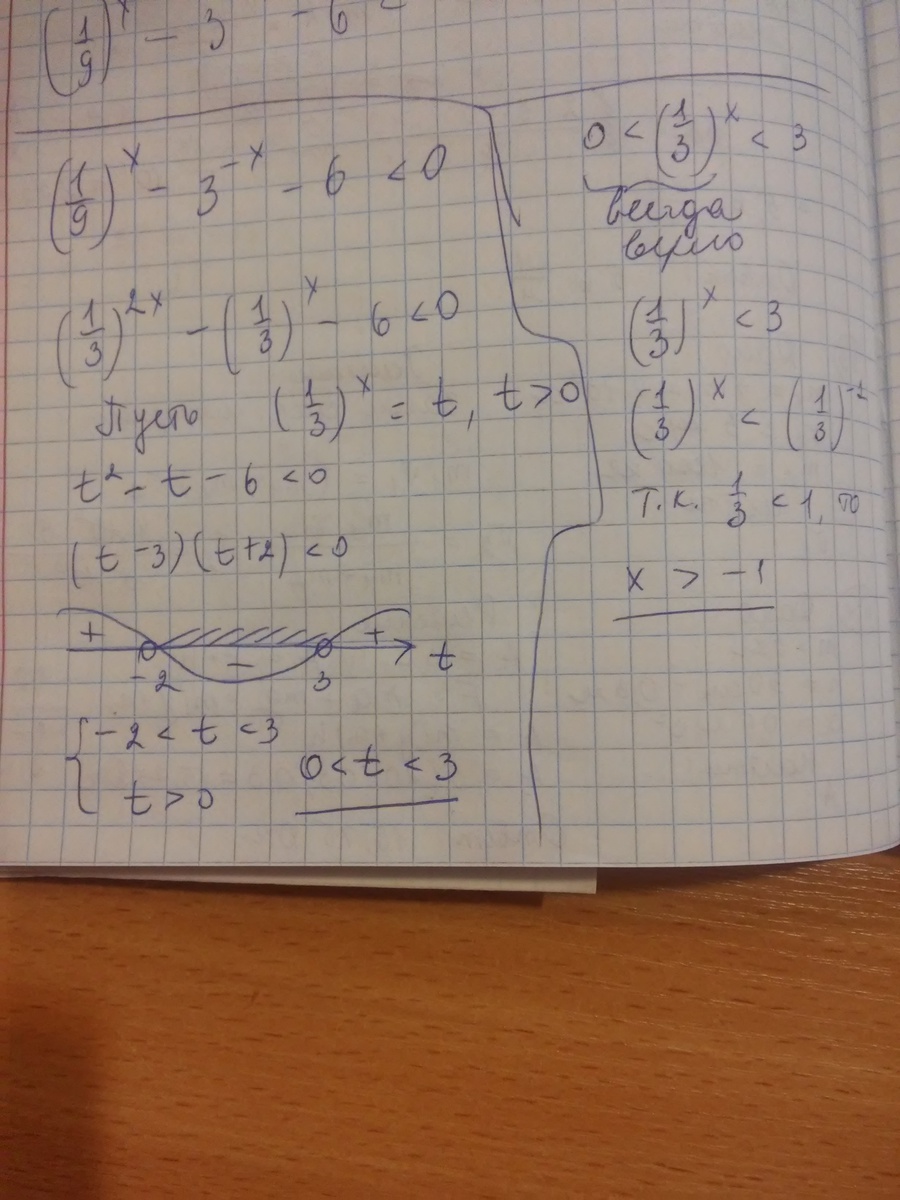 (1/9)^x - 3 - 6 <
(1/9)^x - 3^{-x} - 6 < 0
(1/3)^{2x} - (1/3)^x - 6 < 0
Пусть (1/3)^x = t, t > 0
t² - t - 6 < 0
(t - 3)(t + 2) < 0
+ - + t
-2 3
{ -2 < t < 3
t > 0 0 < t < 3
0 < (1/3)^x < 3
всегда
верно
(1/3)^x < 3
(1/3)^x < (1/3)^{-1}
Т.к. 1/3 < 1, то
x > -1